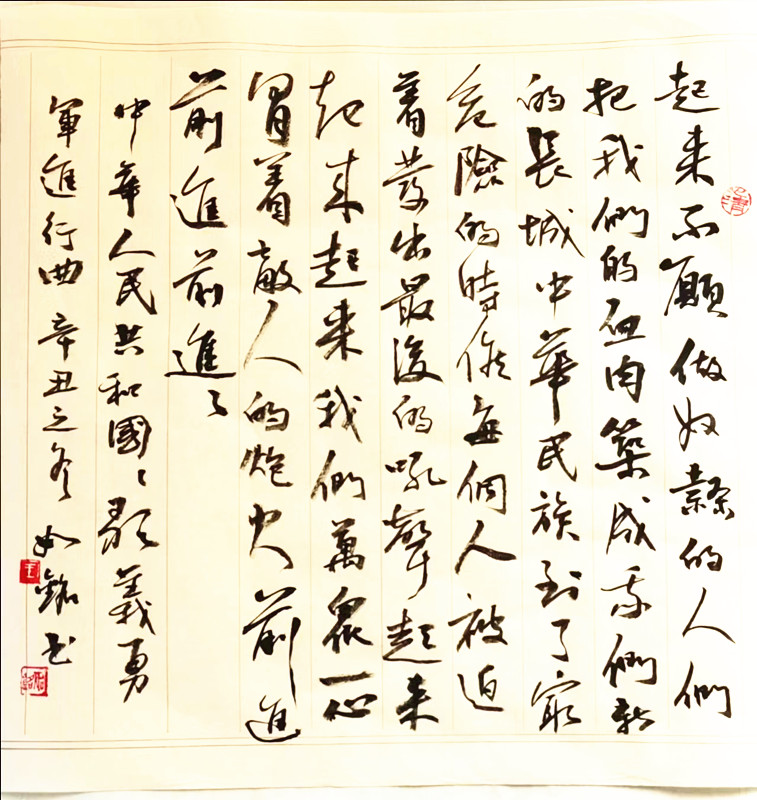 起来不願做奴隸的人們
把我們的血肉築成我們新
的長城中華民族到了最
危險的時候每個人被迫
着發出最後的吼聲起来
起来起来我們萬眾一心
冒着敵人的炮火前進
前進前進〻
中華人民共和國〻歌義勇
軍進行曲辛丑之冬如銘书
王